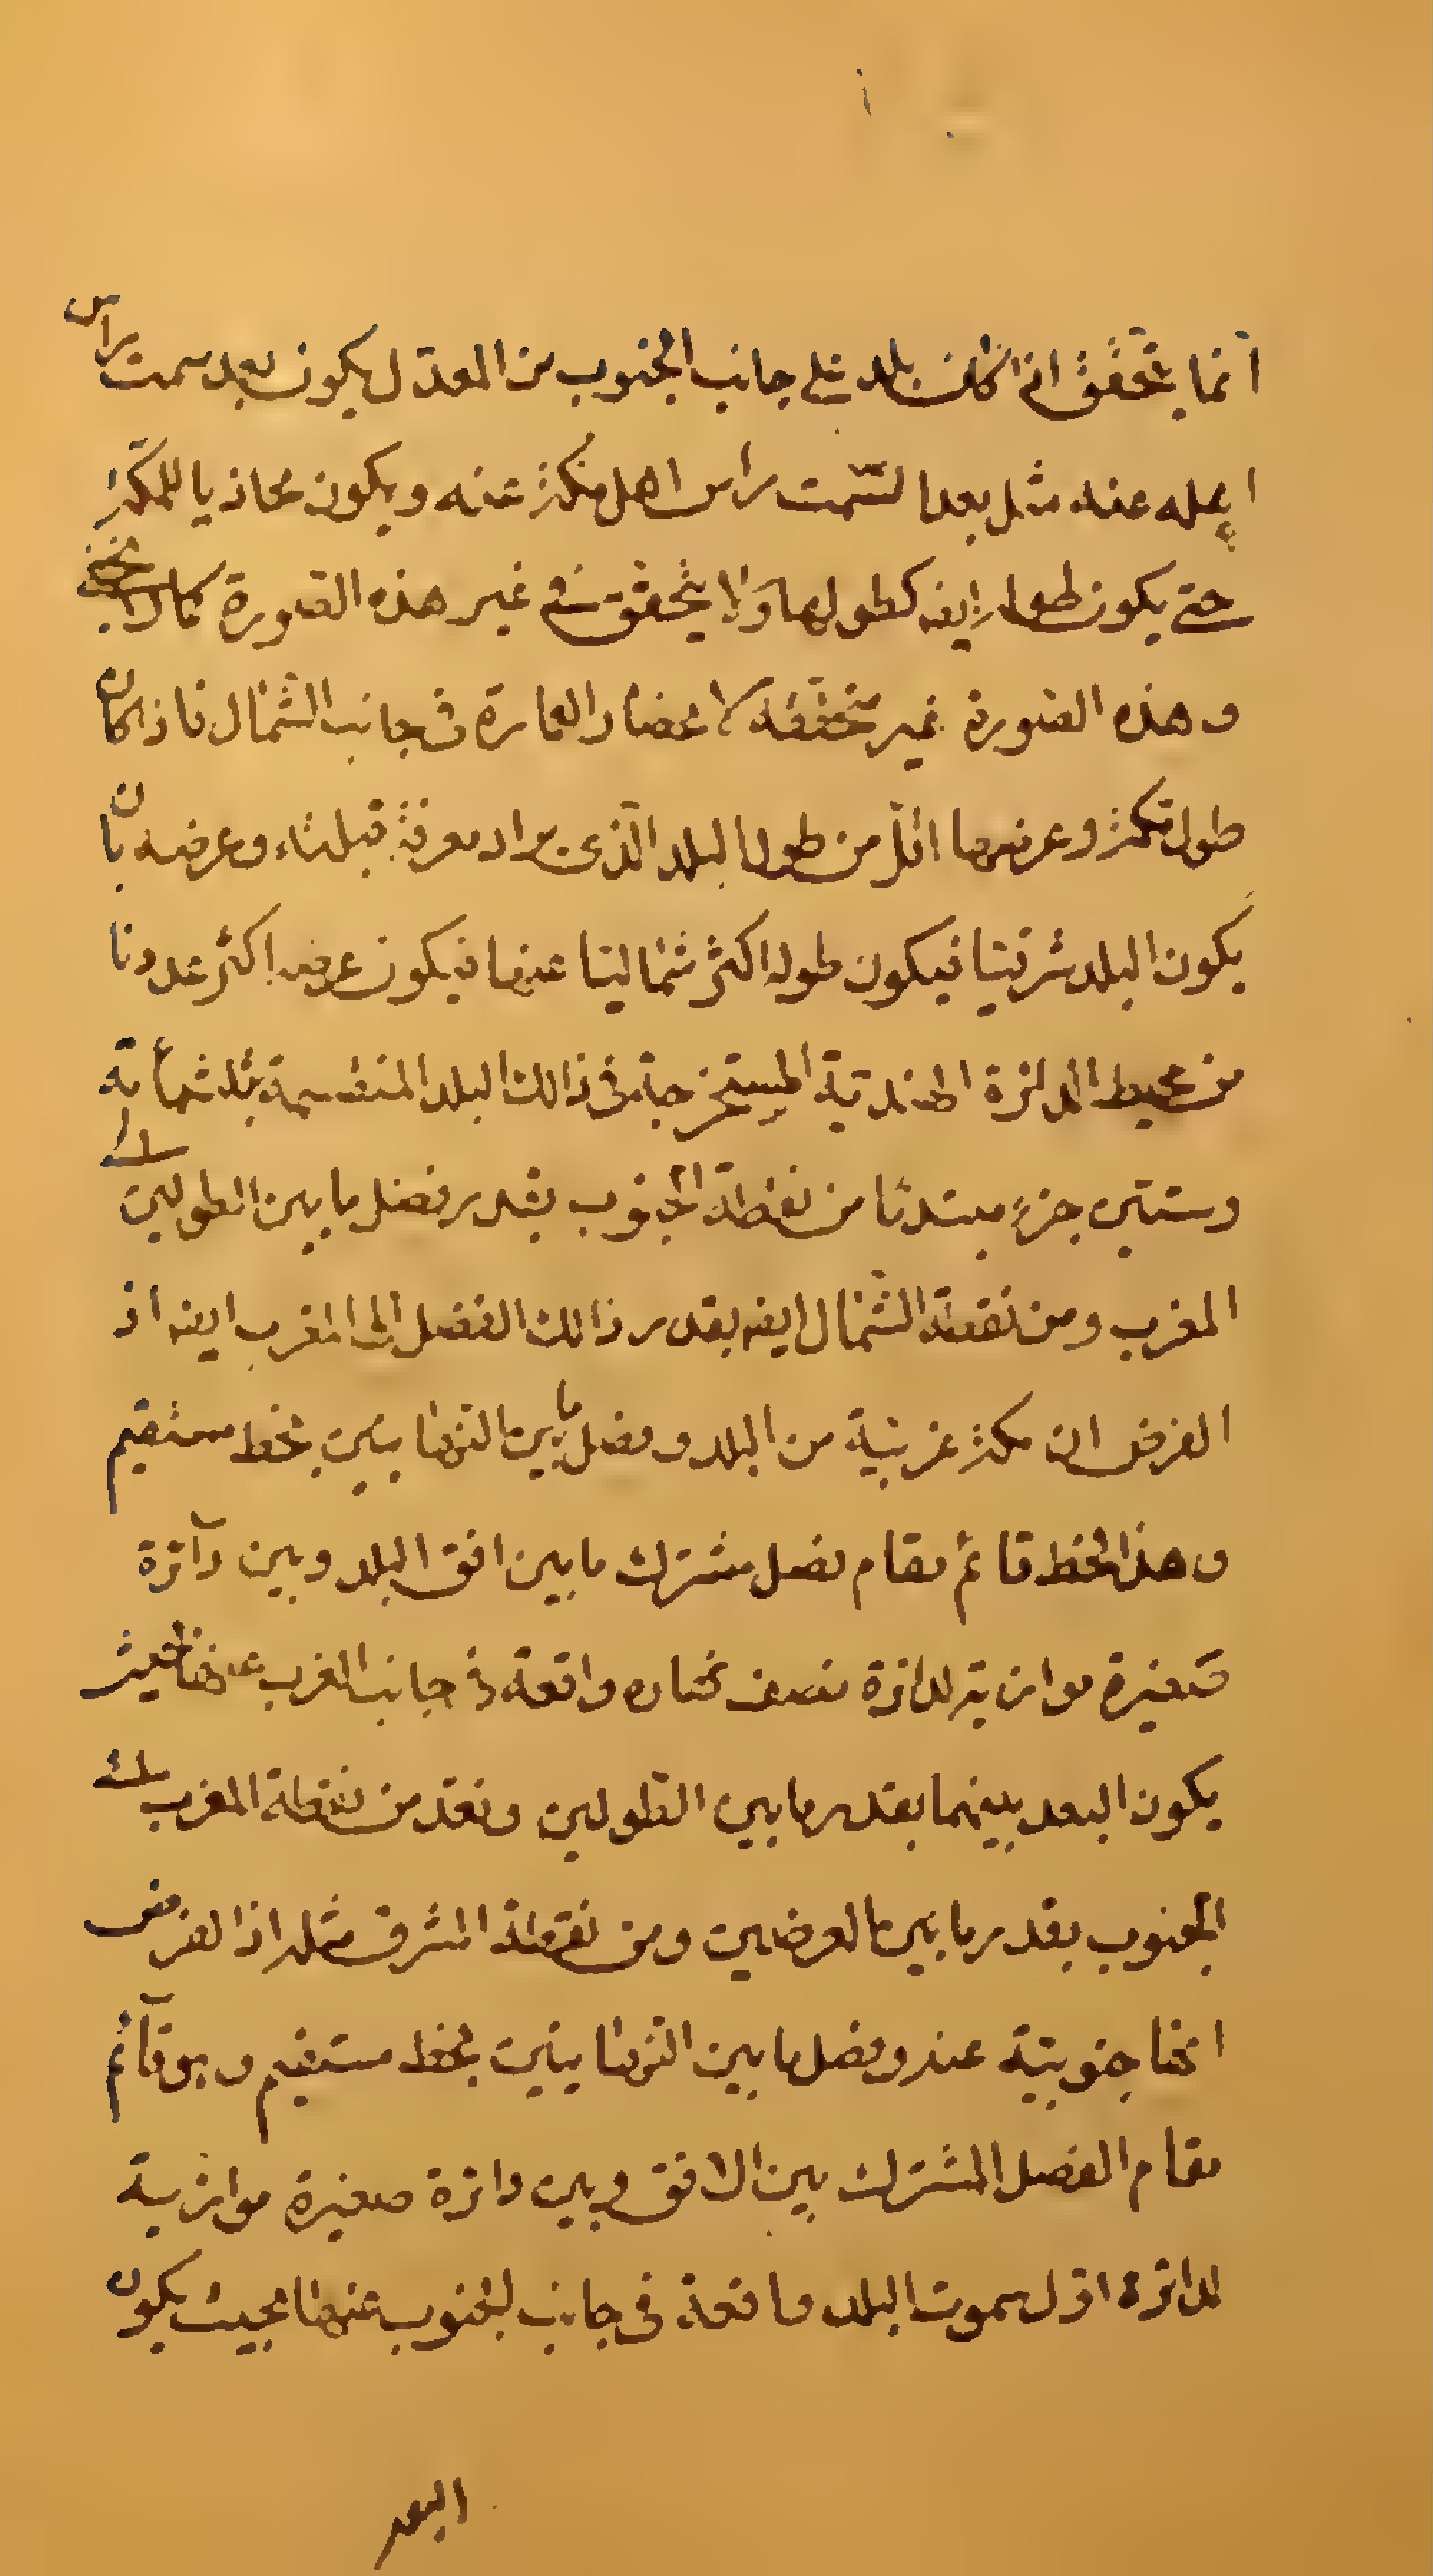 انما يتحقق اذا كان بلد على جانب الجنوب من المعدّل يكون بعد سمت راس
اهله عنه مثل بعد السّمت راس اهل مكة عنه ويكون محاذيا للمكة
حتى يكون طولها ايضه كطولها ولا يتحقق في غير هذه الصّورة كما لا يخفى
وهذه الصّورة غير متحققة لانحصار العمارة في جانب الشّمال فاذا كان
طول مكة وعرضها اقلّ من طول البلد الّذى يراد معرفة قبلته وعرضه بان
يكون البلد شرقيّا فيكون طوله اكثر شماليّا عنها فيكون عرضه اكثر عددنا
من محيط الدائرة الهنديّة المستخرجة فى ذالك البلد المنقسمة بثلثمأئة
وستّين جزء مبتدئا من نقطة الجنوب بقدر فضل ما بين الطولين الى
المغرب ومن نقطة الشّمال ايضه بقدر ذالك الفضل الى المغرب ايضه اذ
الفرض ان مكة غربيّة من البلد ونصل ما بين النّهايتين بخط مستقيم
وهذا الخط قائم مقام فصل مشترك ما بين افق البلد وبين دآئرة
صغيرة موازية لدائرة نصف نهاره واقعة فى جانب الغرب عنها بحيث
يكون البعد بينهما بقدر ما بين الطّولين ونعد من نقطة المغرب الى
الجنوب بقدر ما بين العرضين ومن نقطة المشرق مثله اذ الفرض
انها جنوبيّة عنه ونصل ما بين النّهايتين بخط مستقيم وهو قآئم
مقام الفصل المشترك بين الافق وبين دائرة صغيرة موازية
لدائرة اوّل سموت البلد واقعة فى جانب الجنوب عنها بحيث يكون
البعد